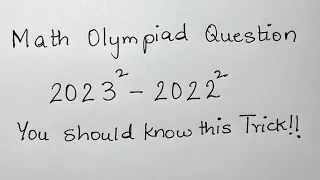 Math Olympiad Question
2023² - 2022²
You should know this Trick!!